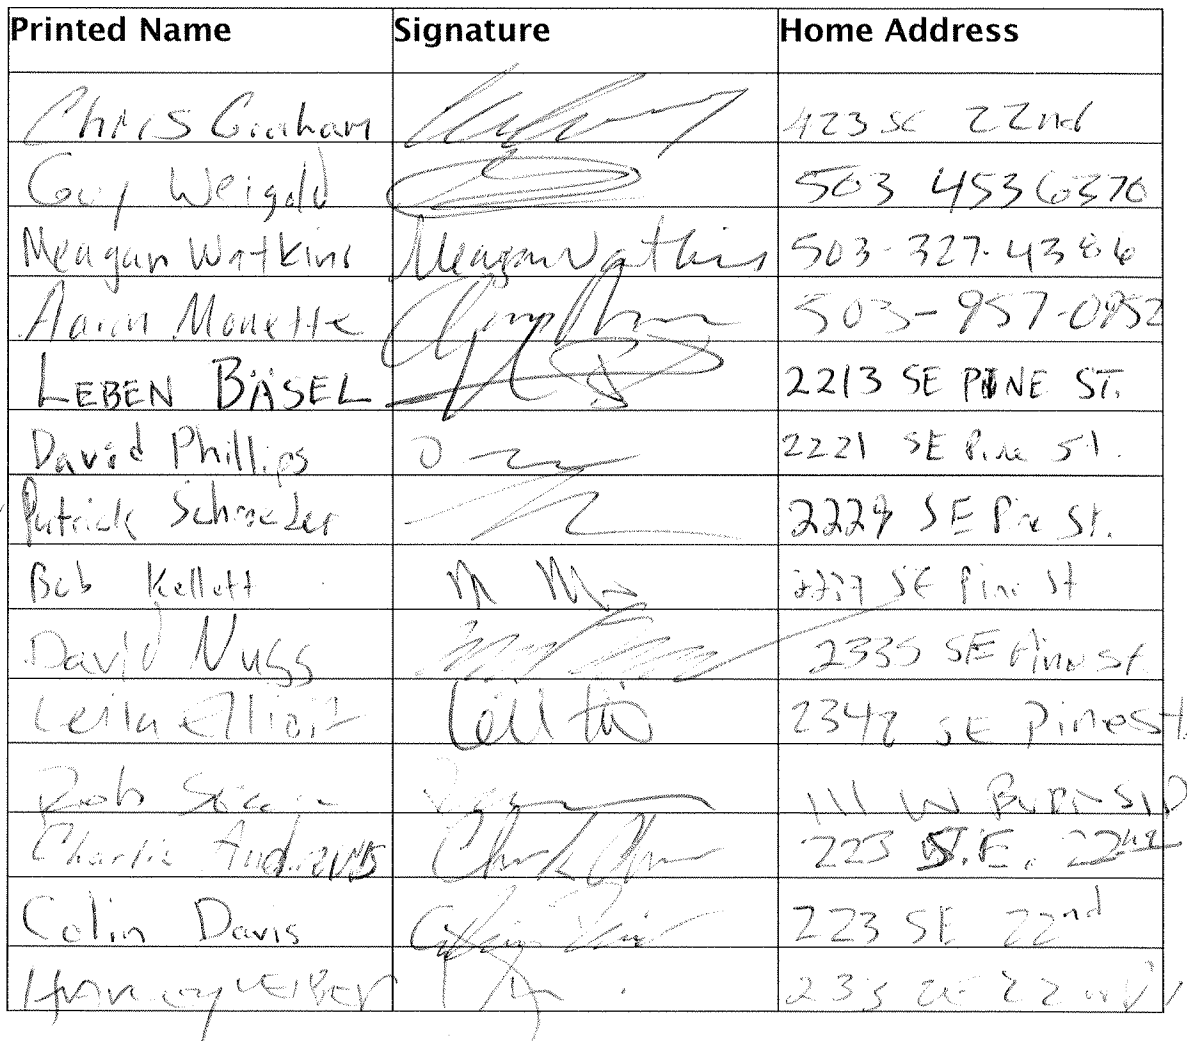 Printed Name Signature Home Address
Chris Graham 423 SE 22nd
Guy Weigold 503 4536370
Meagan Watkins Meagan Watkins 503-327-4386
Aaron Monette 503-957-0952
LEBEN BÄSEL 2213 SE PINE ST.
David Phillips 2221 SE Pine St.
Patrick Schroeder 2229 SE Pine St.
Bob Kellett SE Pine St
David Nuss 2335 SE Pine St
Leila Elliott 2342 SE Pine St.
Rob 111 W BURNSID
Charlie Andrews 223 S.E. 22nd
Colin Davis Colin Davis 223 SE 22nd
233 SE 22nd